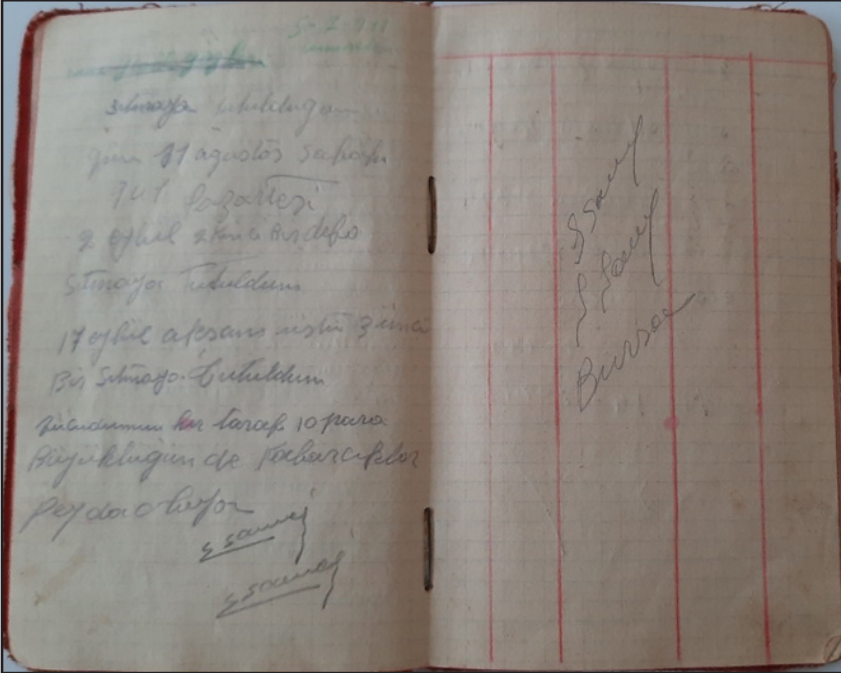 5-2-941
Sıtmaya tutulduğum
gün 31 ağustos Sabahı
941 Pazartesi
2 eylul 2kinci Bir defa
Sıtmaya Tutuldum
17 eylül akşam üstü 3üncü
Bir Sıtmaya tutuldum
Vücudumun her tarafı 10 para
Büyüklüğün de Kabarcıklar
Peyda oluyor
Bursa